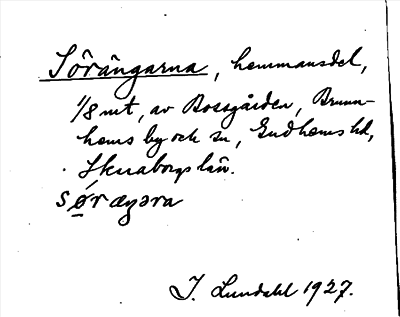 Sörängarna, hemmansdel,
1/8 mt, av Bossgården, Brunn-
hems by och sn, Gudhems hd,
Skaraborgs län.
søræŋara
I. Lundahl 1927.